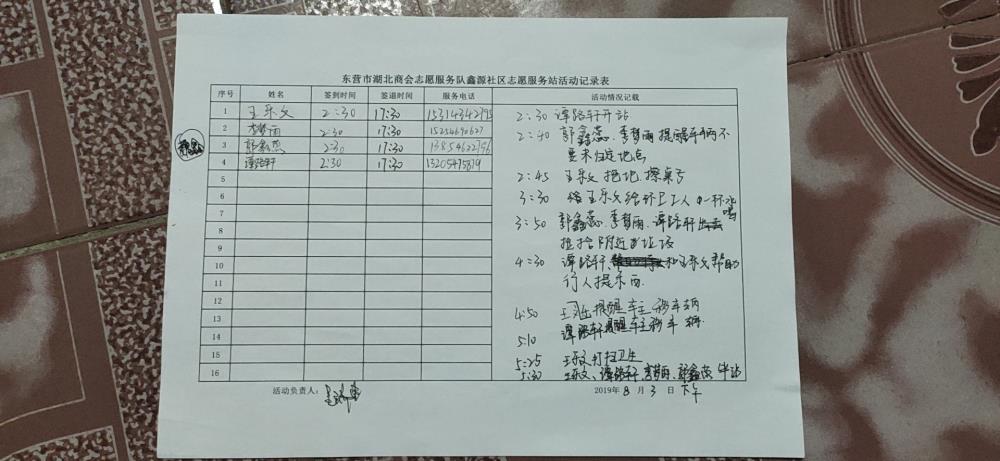 东营市湖北商会志愿服务队鑫源社区志愿服务站活动记录表
序号 姓名 签到时间 签退时间 服务电话 活动情况记载
1 王乐文 2:30 17:30
2 李梦雨 2:30 17:30
3 郭鑫蕊 2:30 17:30
4 谭路轩 2:30 17:30
5
6
7
8
9
10
11
12
13
14
15
16
2:30 谭路轩开站
2:40 郭鑫蕊、李梦雨提醒车辆不
要未归定地点
2:45 王乐文拖地、擦桌子
3:30 王乐文给环卫工人一杯水喝
3:50 郭鑫蕊、李梦雨、谭路轩出去
捡拾附近垃圾
4:30 谭路轩、和王乐文帮助
行人提东西
4:50 提醒车主移车辆
5:10 谭路轩提醒车主移车辆
5:25 王乐文打扫卫生
5:30 王乐文、谭路轩、李梦雨、郭鑫蕊
活动负责人：
2019年 8 月 3 日 下午